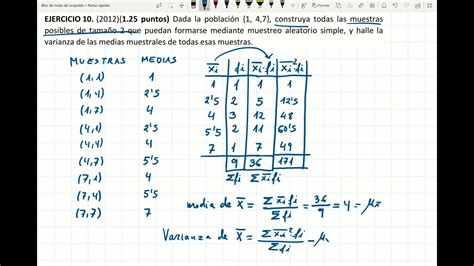 Bloc de notas de Leopoldo » Notas rápidas
EJERCICIO 10. (2012)(1.25 puntos) Dada la población {1, 4,7}, construya todas las muestras
posibles de tamaño 2 que puedan formarse mediante muestreo aleatorio simple, y halle la
varianza de las medias muestrales de todas esas muestras.
MUESTRAS MEDIAS
(1,1) 1
(1,4) 2'5
(1,7) 4
(4,1) 2'5
(4,4) 4
(4,7) 5'5
(7,1) 4
(7,4) 5'5
(7,7) 7
x̄i fi x̄i·fi x̄i²fi
1 1 1 1
2'5 2 5 12'5
4 3 12 48
5'5 2 11 60'5
7 1 7 49
9 36 171
Σfi Σx̄ifi
media de X̄ = Σx̄ifi / Σfi = 36/9 = 4 = μx
Varianza de X̄ = Σx̄i²·fi / Σfi - μx